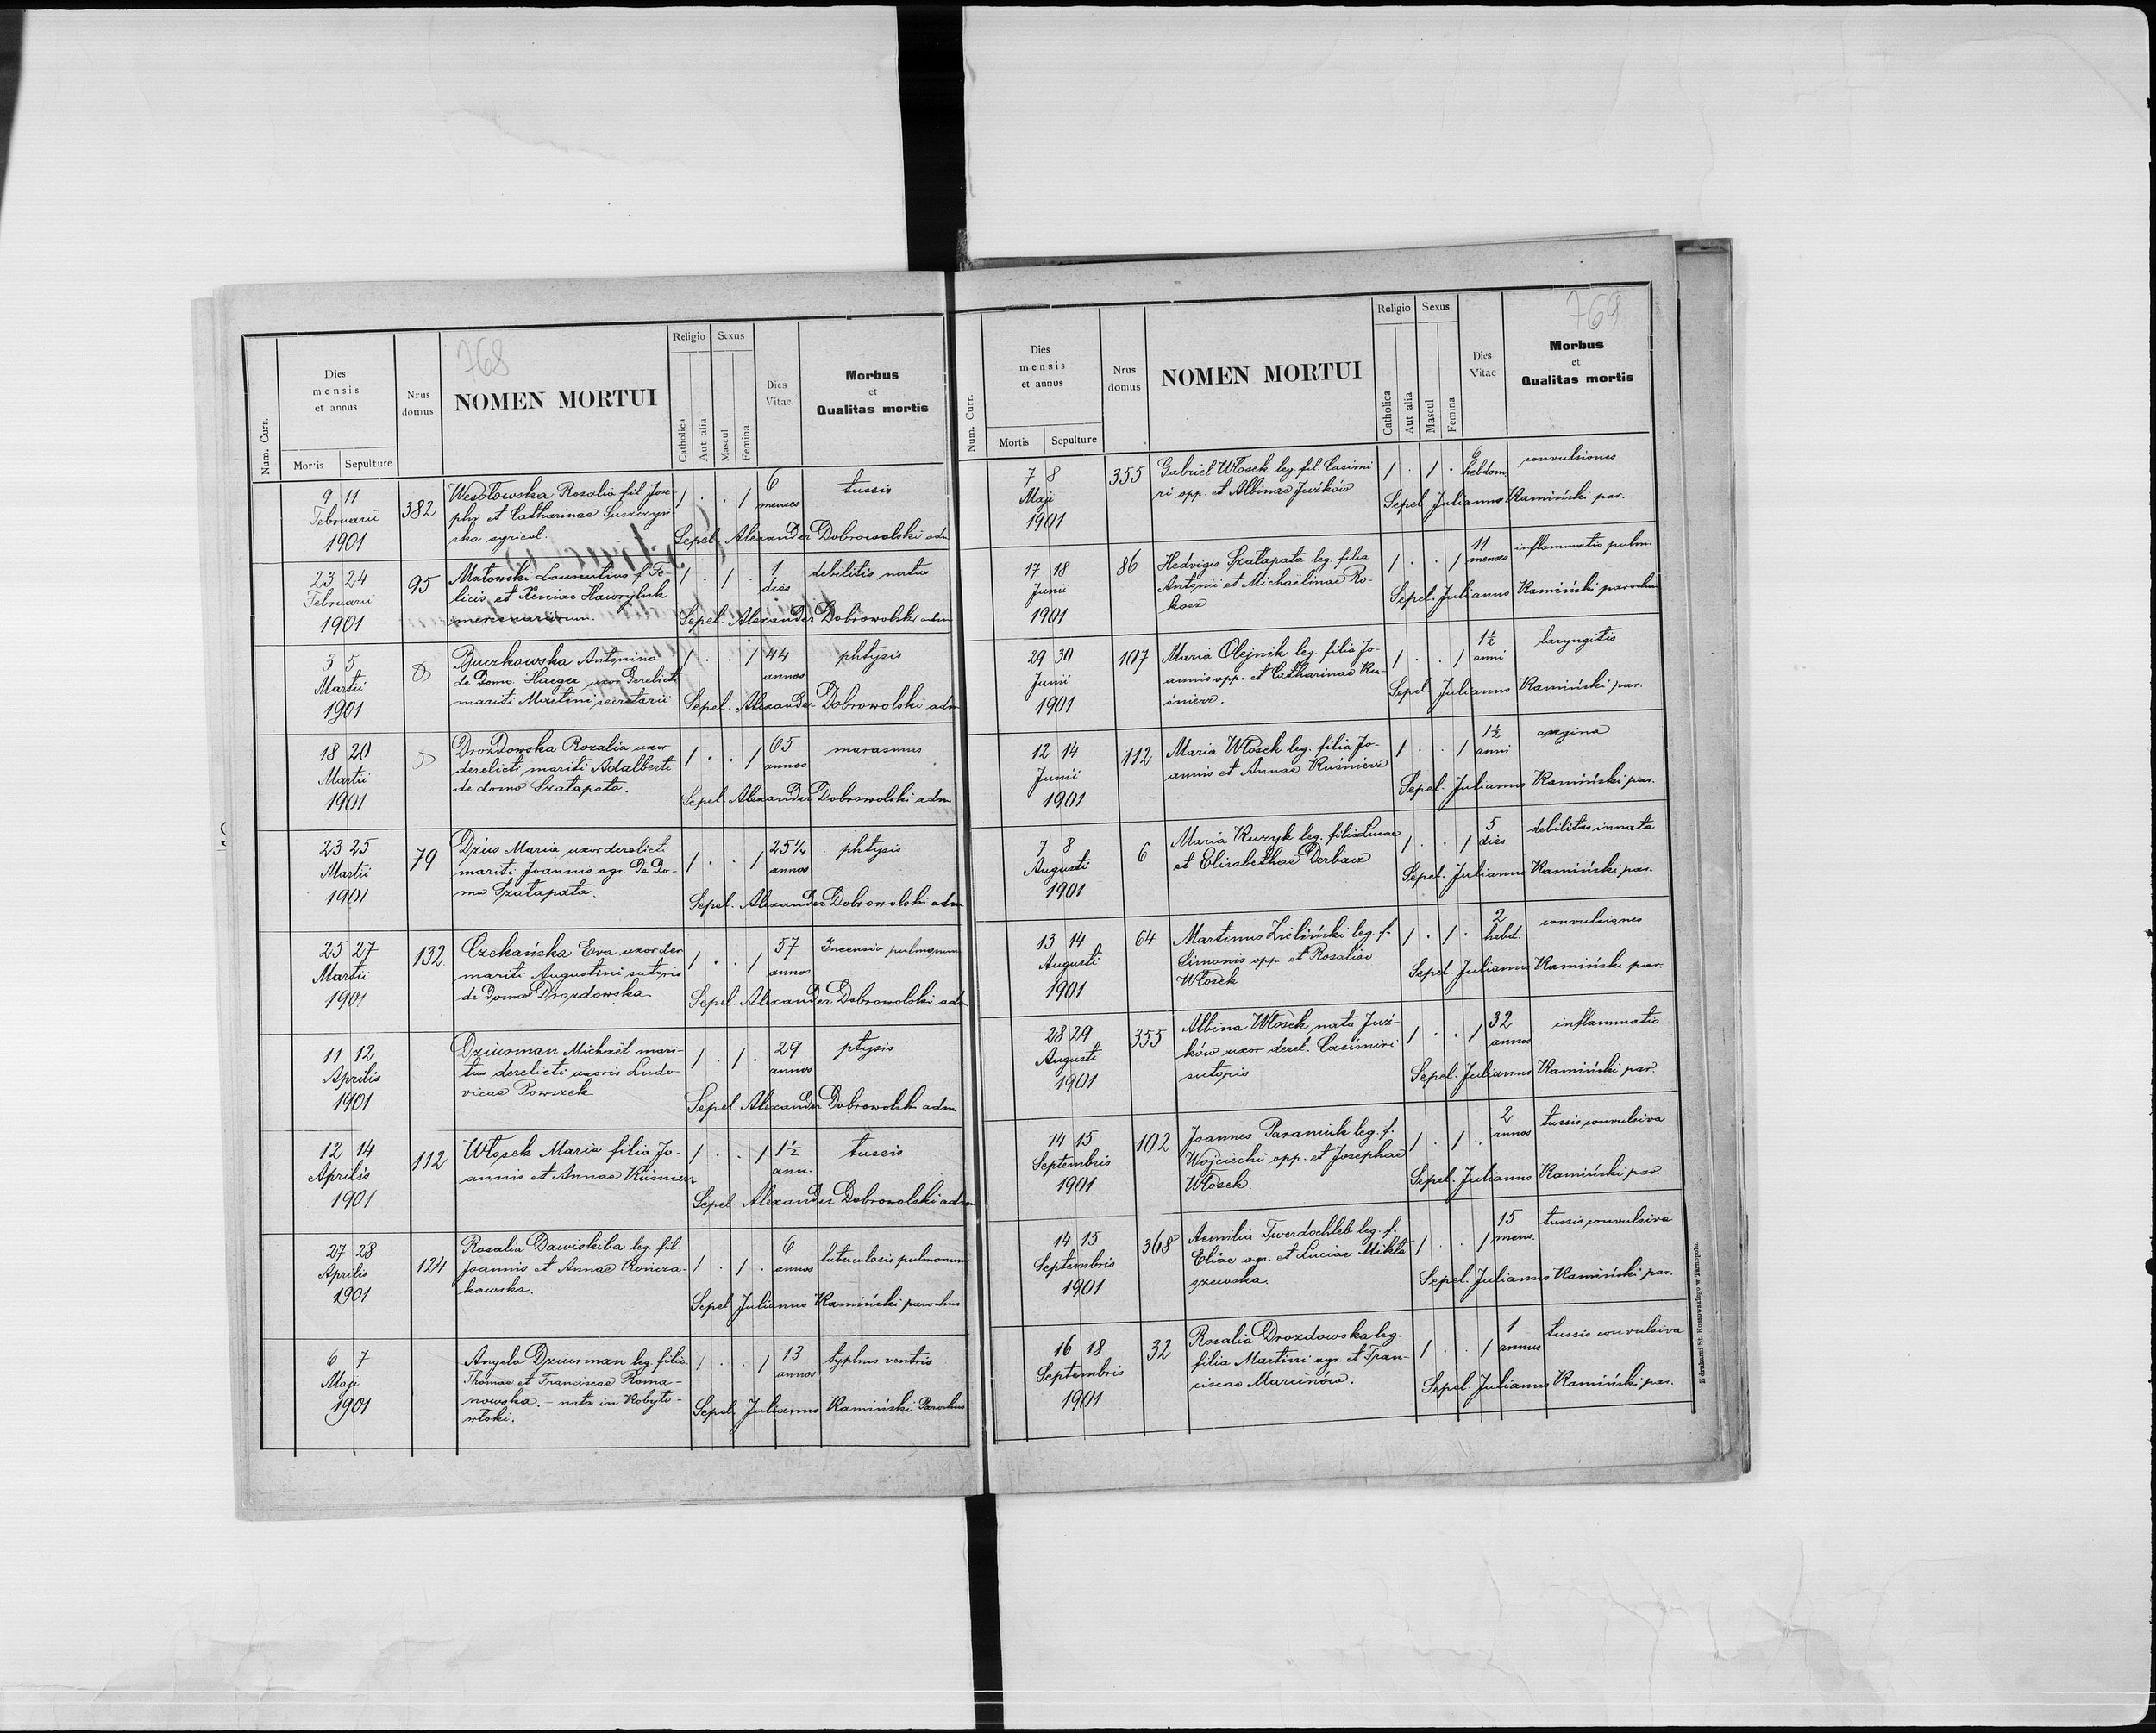 768
Num. Curr.
Dies
mensis
et annus
Mortis Sepulture
Nrus
domus
NOMEN MORTUI
Religio
Catholica
Aut alia
Sexus
Mascul
Femina
Dies
Vitae
Morbus
et
Qualitas mortis
9 11
Februarii
1901
382
Wesołowska Rosalia fil. Jose-
phi et Catharinae Suszczyń
ska agricol.
1 . . 1
6
menses
tussis
Sepel. Alexander Dobrowolski adm
23 24
Februarii
1901
95
Matowski Laurentius f. Fe-
licis et Xeniae Hawryluk
mercenariorum.
1 . 1 .
1
dies
debilitis natus
Sepel. Alexander Dobrowolski adm
3 5
Martii
1901
Buczkowska Antonina
de Domo Haeger uxor Derelicti
mariti Martini secretarii
1 . . 1
44
annos
phtysis
Sepel. Alexander Dobrowolski adm
18 20
Martii
1901
Drozdowska Rozalia uxor
derelicti mariti Adalberti
de domo Szałapata.
1 . . 1
65
annos
marasmus
Sepel. Alexander Dobrowolski adm
23 25
Martii
1901
79
Dzius Maria uxor derelicti
mariti Joannis agr. De Do-
mo Szałapata.
1 . . 1
25 1/4
annos
phtysis
Sepel. Alexander Dobrowolski adm
25 27
Martii
1901
132
Czekańska Eva uxor der
mariti Augustini sutoris
de Domo Drozdowska
1 . . 1
57
annos
Incensio pulmonum
Sepel. Alexander Dobrowolski adm
11 12
Aprilis
1901
Dziurman Michaël mari-
tus derelicti uxoris Ludo
vicae Powszek
1 . 1 .
29
annos
ptysis
Sepel Alexander Dobrowolski adm
12 14
Aprilis
1901
112
Włosek Maria filia Jo-
annis et Annae Kuśnierz
1 . . 1
1½
ann.
tussis
Sepel Alexander Dobrowolski adm
27 28
Aprilis
1901
124
Rosalia Dawiskiba leg. fil.
Joannis et Annae Kończa-
kowska.
1 . 1 .
6
annos
tuberculosis pulmonum
Sepel Julianus Kamiński parochus
6 7
Maji
1901
Angela Dziurman leg. filia
Thomae et Franciscae Roma-
nowska. - nata in Kobyło-
włoki.
1 . . 1
13
annos
typhus ventris
Sepel. Julianus Kamiński Parochus
769
Num. Curr.
Dies
mensis
et annus
Mortis Sepulture
Nrus
domus
NOMEN MORTUI
Religio
Catholica
Aut alia
Sexus
Mascul
Femina
Dies
Vitae
Morbus
et
Qualitas mortis
7 8
Maji
1901
355
Gabriel Włosek leg. fil. Casimi
ri opp. et Albinae Juźków
1 . 1 .
6
hebdom.
convulsiones
Sepel Julianus Kamiński par.
17 18
Junii
1901
86
Hedvigis Szałapata leg. filia
Antonii et Michaëlinae Ro-
kosz
1 . . 1
11
menses
inflammatio pulm.
Sepel. Julianus Kamiński parochus
29 30
Junii
1901
107
Maria Olejnik leg. filia Jo-
annis opp. et Catharinae Ku-
śnierz.
1 . . 1
1½
anni
laryngitis
Sepel Julianus Kamiński par.
12 14
Junii
1901
112
Maria Włosek leg. filia Jo-
annis et Annae Kuśnierz
1 . . 1
1½
anni
angina
Sepel. Julianus Kamiński par.
7 8
Augusti
1901
6
Maria Kuzyk leg. filia Lucae
et Elisabethae Derbasz
1 . . 1
5
dies
debilitas innata
Sepel. Julianus Kamiński par.
13 14
Augusti
1901
64
Martinus Zieliński leg. f.
Simonis opp et Rosaliae
Włosek
1 . 1 .
2
hebd.
convulsiones
Sepel. Julianus Kamiński par.
28 29
Augusti
1901
355
Albina Włosek nata Juź-
ków uxor derel. Casimiri
sutoris
1 . . 1
32
annos
inflammatio
Sepel. Julianus Kamiński par.
14 15
Septembris
1901
102
Joannes Paramiuk leg. f.
Wojciechi opp. et Josephae
Włosek
1 . 1 .
2
annos
tussis convulsiva
Sepel. Julianus Kamiński par.
14 15
Septembris
1901
368
Aemilia Twerdochleb leg. f.
Eliae agr. et Luciae Mikła
szewska.
1 . . 1
15
mens.
tussis convulsiva
Sepel. Julianus Kamiński par.
16 18
Septembris
1901
32
Rosalia Drozdowska leg.
filia Martini agr. et Fran-
ciscae Marcinów.
1 . . 1
1
annus
tussis convulsiva
Sepel Julianus Kamiński par.
Z drukarni St. Kossowskiego w Tarnopolu.